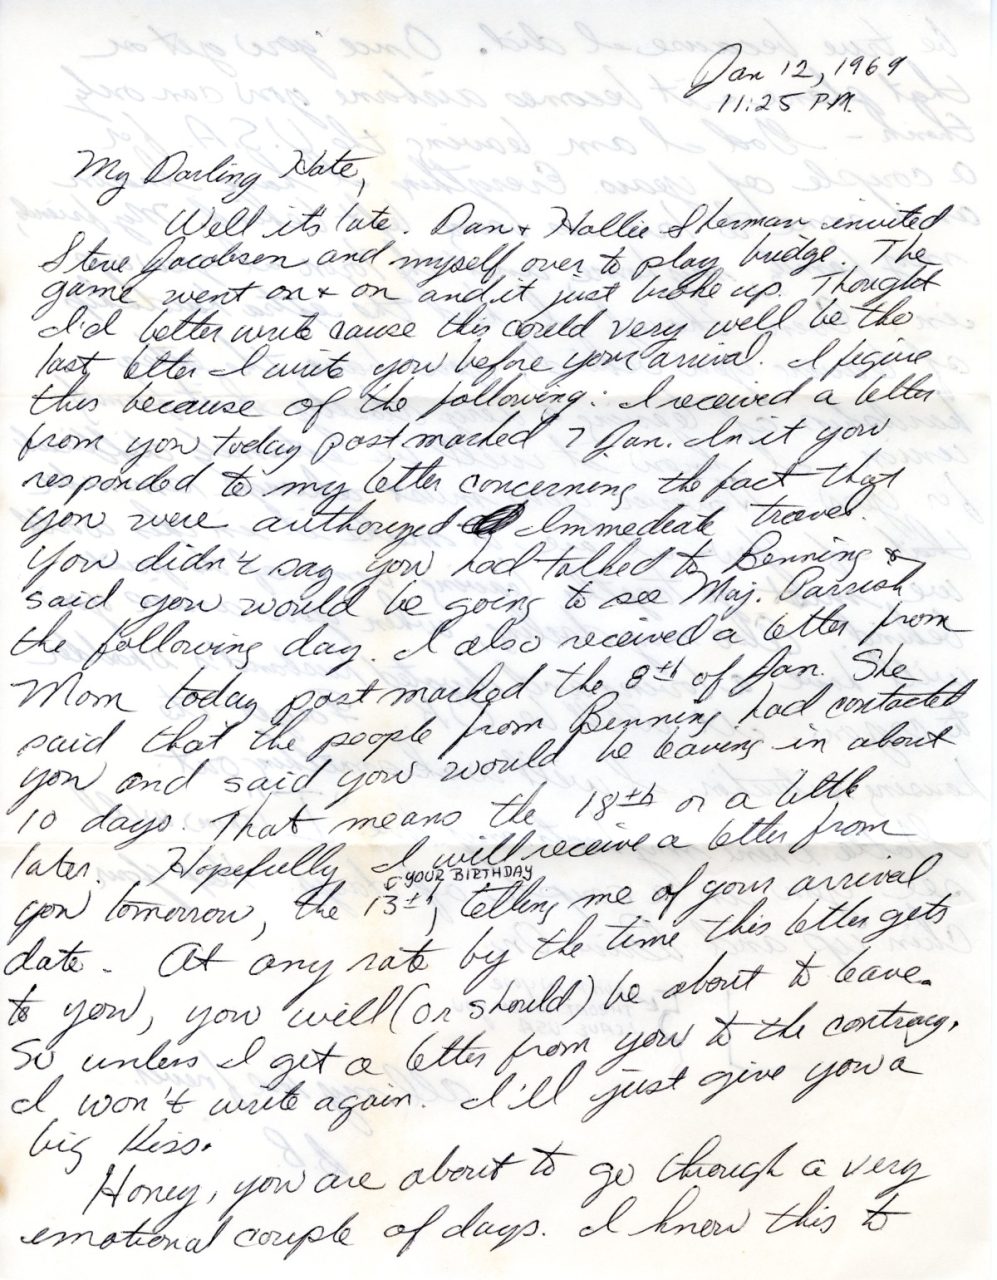 Jan 12, 1969
11:25 P.M.
My Darling Kate,
Well it's late. Dan + Hollie Sherman invited
Steve Jacobsen and myself over to play bridge. The
game went on + on and it just broke up. Thought
I'd better write cause this could very well be the
last letter I write you before your arrival. I figure
this because of the following: I received a letter
from you today postmarked 7 Jan. In it you
responded to my letter concerning the fact that
you were authorized Immediate travel.
You didn't say you had talked to Benning &
said you would be going to see Maj. Parrish
the following day. I also received a letter from
Mom today postmarked the 8th of Jan. She
said that the people from Benning had contacted
you and said you would be leaving in about
10 days. That means the 18th or a little
later. Hopefully I will receive a letter from
YOUR BIRTHDAY
you tomorrow, the 13th, telling me of your arrival
date. At any rate by the time this letter gets
to you, you will (or should) be about to leave.
So unless I get a letter from you to the contrary,
I won't write again. I'll just give you a
big kiss.
Honey, you are about to go through a very
emotional couple of days. I know this to